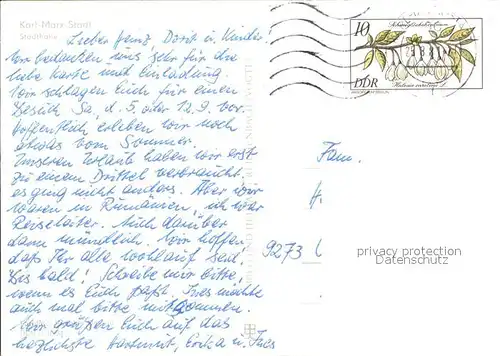 Karl-Marx-Stadt
Stadthalle
Lieber Heinz, Dorit u. Kinder
Wir bedanken uns sehr für die
liebe Karte und Einladung.
Wir schlagen Euch für einen
Besuch Sa, d. 5. oder 12.9. vor
Hoffentlich erleben wir noch
etwas vom Sommer.
Unseren Urlaub haben wir erst
zu einem Drittel verbraucht,
es ging nicht anders. Aber wir
waren in Rumänien, ich war
Reiseleiter. Auch darüber
dann mündlich. Wir hoffen
daß Ihr alle wohlauf seid.
Bis bald! Schreibe mir bitte
wenn es Euch paßt. Ines möchte
auch mal bitte mitkommen.
Wir grüßen Euch auf das
herzlichste Hartmut, Erika u. Ines
10
DDR
Halesia carolina L.
Fam.
H.
9273
privacy protection
Datenschutz